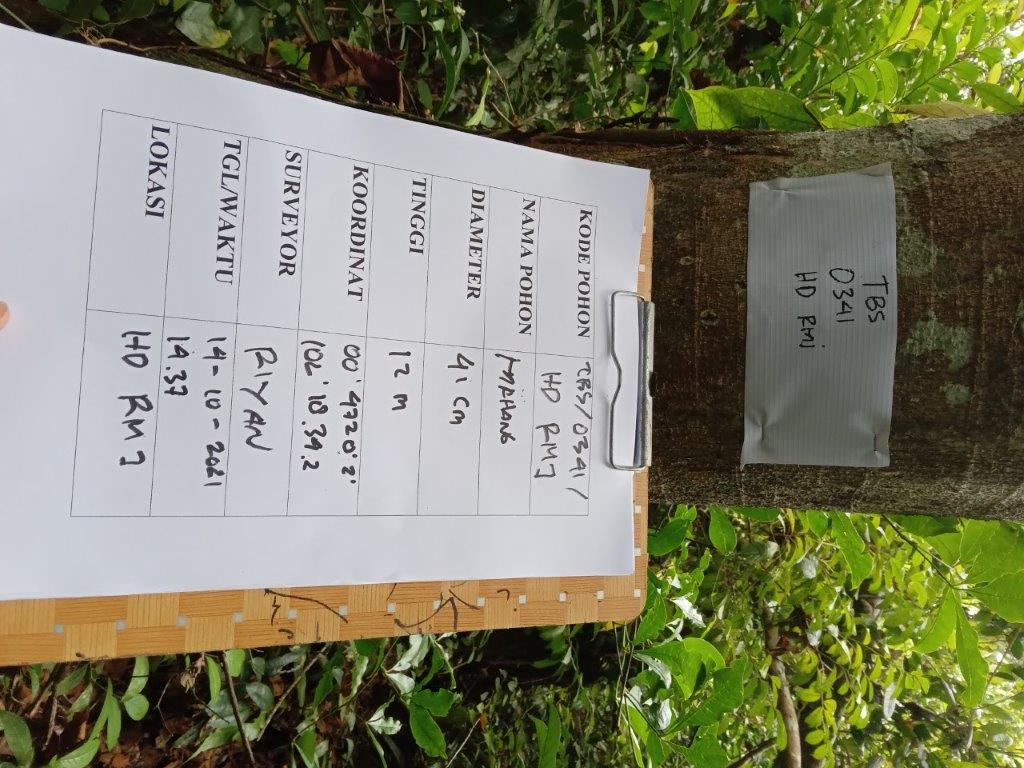 KODE POHON TBS/0341/
HD RMJ
NAMA POHON MAHANG
DIAMETER 41 cm
TINGGI 12 m
KOORDINAT 00° 47 20.2'
102° 18.34.2
SURVEYOR RIYAN
TGL/WAKTU 14-10-2021
14.37
LOKASI HD RMJ
TBS
0341
HD RMJ